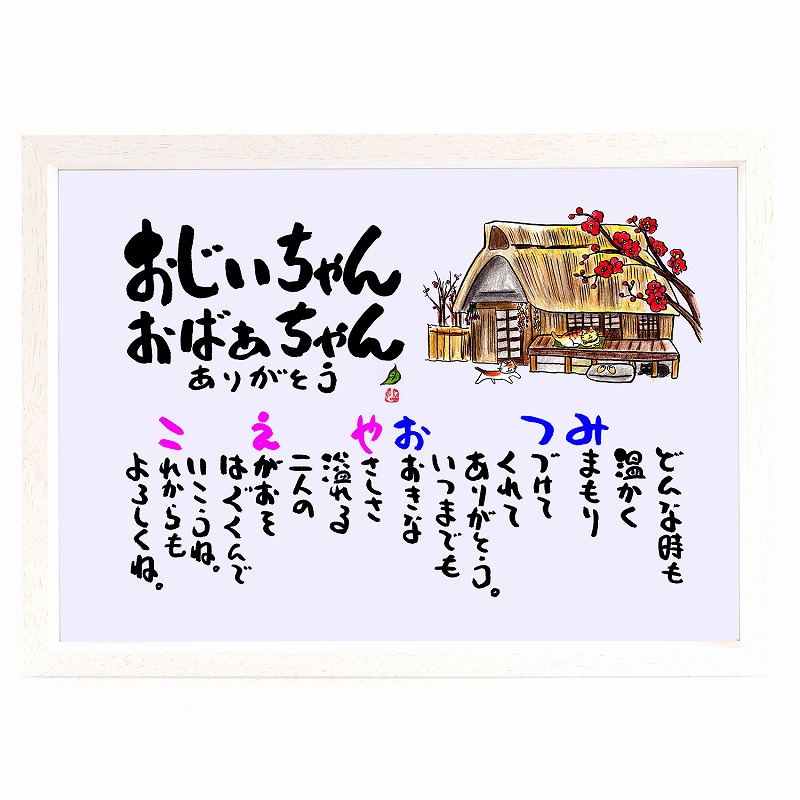 おじいちゃん
おばぁちゃん
ありがとう
どんな時も
温かく
みまもり
つづけて
くれて
ありがとう。
いつまでも
おおきな
やさしさ
溢れる
二人の
えがおを
はぐくんで
いこうね。
これからも
よろしくね。